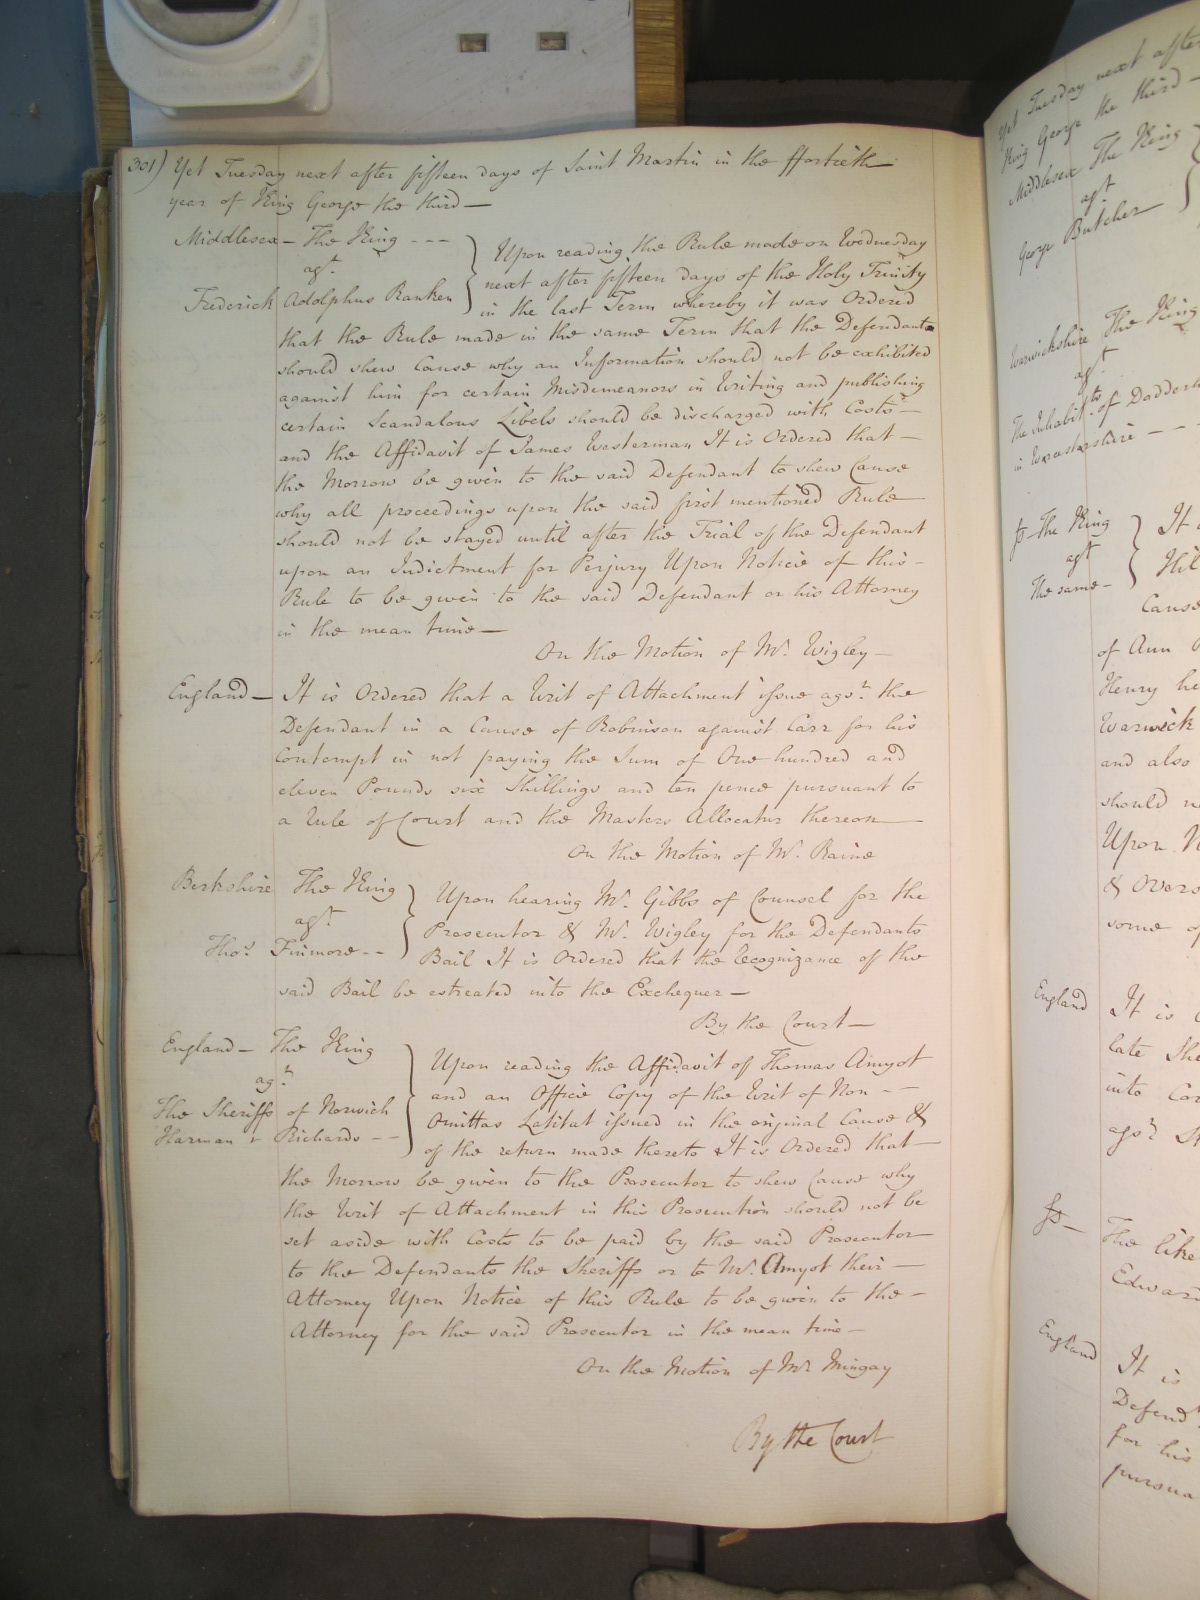 301) Yet Tuesday next after fifteen days of Saint Martin in the ffortieth
year of King George the third —
Middlesex – The King - - -
agt.
Frederick Adolphus Ranken
Upon reading the Rule made on Wednesday
next after fifteen days of the Holy Trinity
in the last Term whereby it was Ordered
that the Rule made in the same Term that the Defendant
should shew Cause why an Information should not be exhibited
against him for certain Misdemeanors in Writing and publishing
certain Scandalous Libels should be discharged with Costs –
and the Affidavit of James Westerman It is Ordered that –
the Morrow be given to the said Defendant to shew Cause
why all proceedings upon the said first mentioned Rule
should not be stayed until after the Trial of the Defendant
upon an Indictment for Perjury Upon Notice of this –
Rule to be given to the said Defendant or his Attorney
in the mean time —
On the Motion of Mr. Wigley –
England — It is Ordered that a Writ of Attachment issue agst. the
Defendant in a Cause of Robinson against Carr for his
Contempt in not paying the Sum of One hundred and
eleven Pounds six Shillings and ten pence pursuant to
a Rule of Court and the Masters Allocatur thereon —
On the Motion of Mr. Raine
Berkshire The King
agt.
Thos. Finmore - -
Upon hearing Mr. Gibbs of Counsel for the
Prosecutor & Mr. Wigley for the Defendants
Bail It is Ordered that the Recognizance of the
said Bail be estreated into the Exchequer —
By the Court —
England – The King
agt.
The Sheriffs of Norwich
Harman & Richards - -
Upon reading the Affidavit of Thomas Amyot
and an Office Copy of the Writ of Non - -
Omittas Latitat issued in the original Cause &
of the return made thereto It is Ordered that –
the Morrow be given to the Prosecutor to shew Cause why
the Writ of Attachment in this Prosecution should not be
set aside with Costs to be paid by the said Prosecutor
to the Defendants the Sheriffs or to Mr. Amyot their –
Attorney Upon Notice of this Rule to be given to the –
Attorney for the said Prosecutor in the mean time –
On the Motion of Mr. Mingay
By the Court
Yet Tuesday next after
King George the third –
Middlesex The King
agt
George Butcher
Warwickshire The King
agt
The Inhabits. of
in Worcestershire - - -
The King
agt
The same –
It
Hil
Cause
of Ann
Henry he
Warwick
and also
should
Upon
& Overs
some of
England It is
late She
into Cor
agst
The like
Edward
England It is
Defendt
for his
pursua